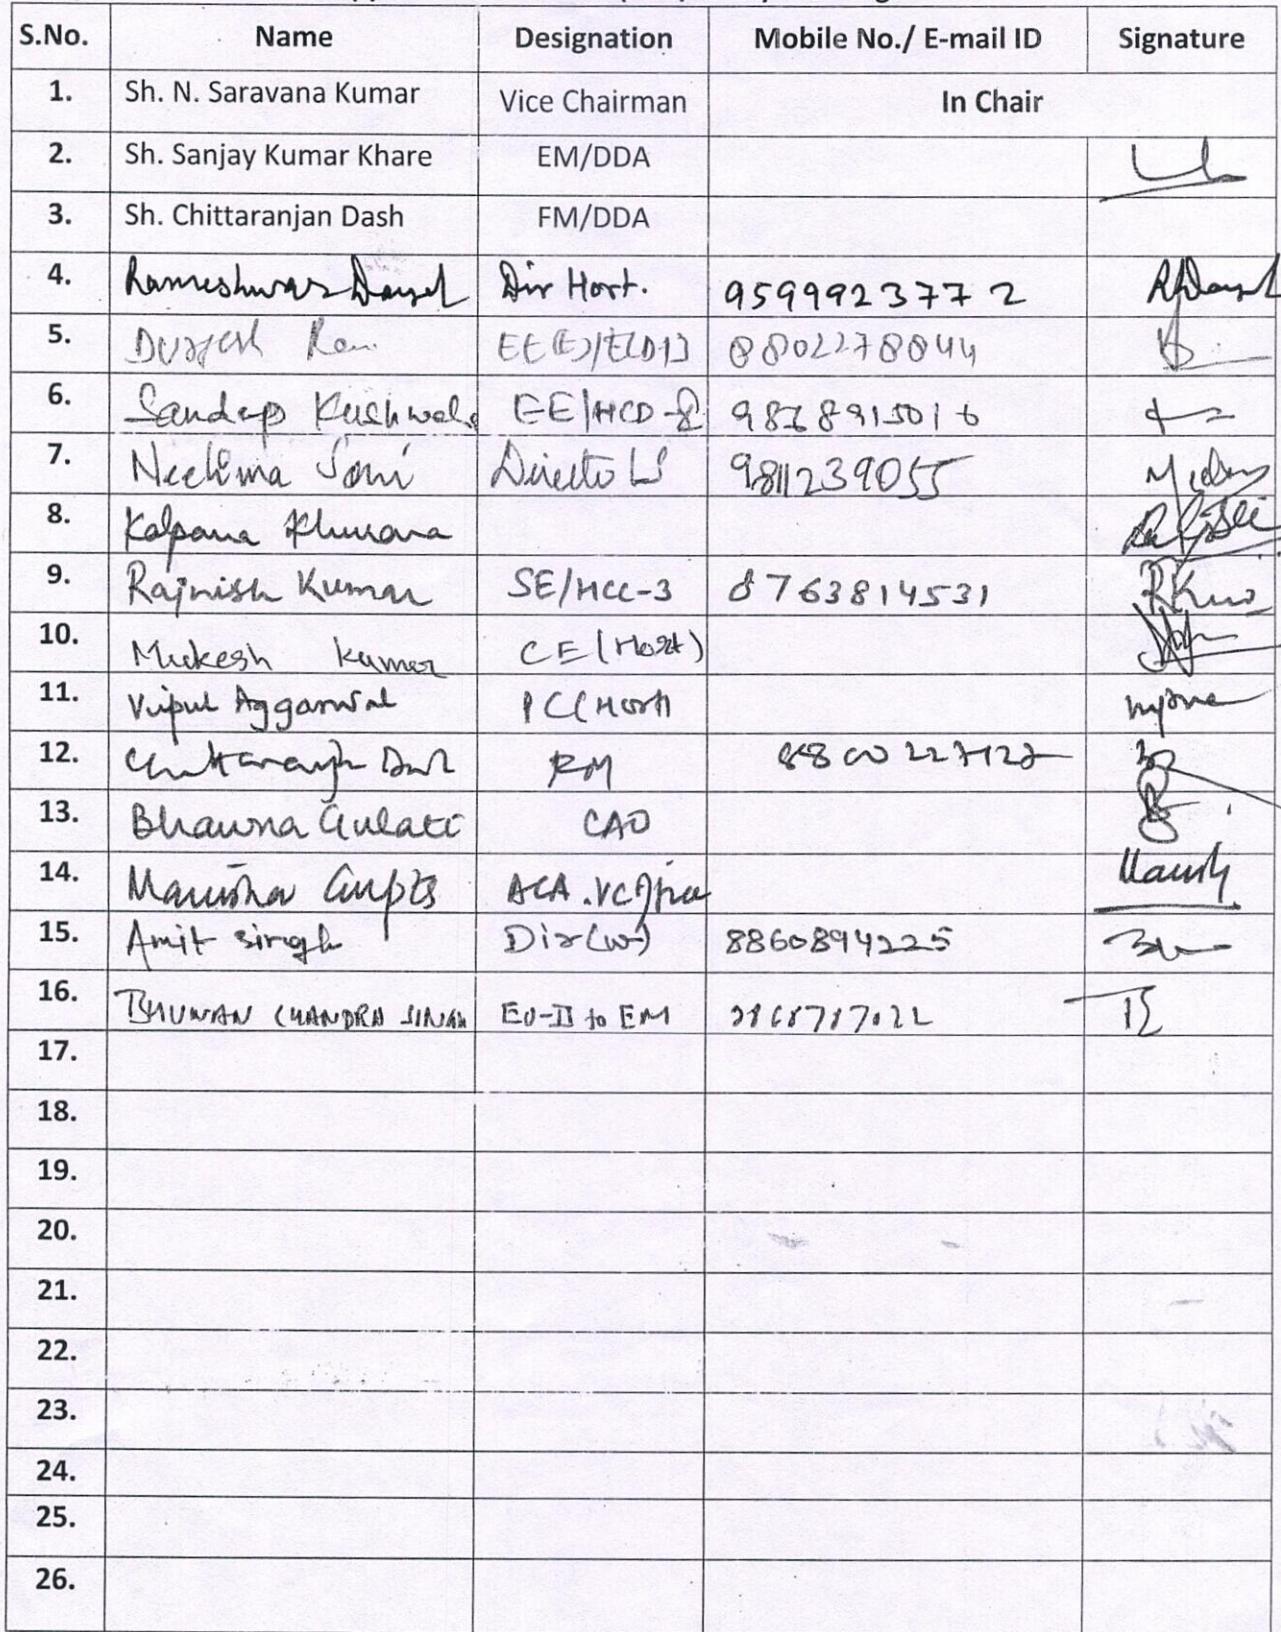 S.No. Name Designation Mobile No./ E-mail ID Signature
1. Sh. N. Saravana Kumar Vice Chairman In Chair
2. Sh. Sanjay Kumar Khare EM/DDA
3. Sh. Chittaranjan Dash FM/DDA
4. Rameshwar Dayal Dir Hort. 9599923772 RDayal
5. Durgesh 8802278844
6. Sandeep Kushwaha EE/HCD-8
7. Neelima Soni Director LS 9811239055
8. Kalpana Khurana
9. Rajnish Kumar SE/HCC-3 8763814531 RKu
10. Mukesh Kumar CE (Hort)
11. Vipul Aggarwal PC(Hort)
12. Chittaranjan Dash FM
13. Bhawna Gulati CAO
14. Manisha Gupta
15. Amit Singh Dir(w) 8860894225
16. BHUWAN CHANDRA SINGH EO-II to EM
17.
18.
19.
20.
21.
22.
23.
24.
25.
26.